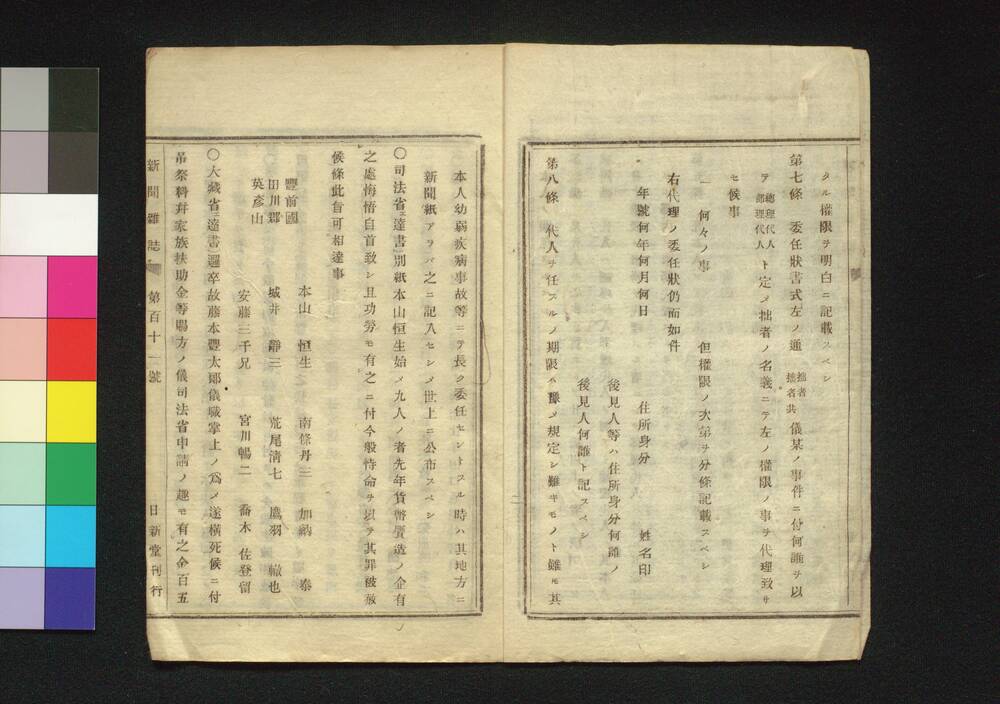 タル權限ヲ明白ニ記載スベシ
第七條　委任狀書式左ノ通
拙者
拙者共
儀某ノ事件ニ付何誰ヲ以
テ
總理代人
部理代人
ト定メ拙者ノ名義ニテ左ノ權限ノ事ヲ代理致サ
セ候事
一　何々ノ事　但權限ノ次第ヲ分條記載スベシ
右代理ノ委任狀仍而如件
年號何年何月何日　住所身分　姓名印
後見人等ハ住所身分何誰ノ
後見人何誰ト記スベシ
第八條　代人ヲ任スルノ期限ハ豫メ規定シ難キモノト雖モ其
本人幼弱疾病事故等ニテ長ク委任セントスル時ハ其地方ニ
新聞紙アラバ之ニ記入セシメ世上ニ公布スベシ
〇司法省ヱ達書 別紙本山恒生始メ九人ノ者先年貨幣贋造ノ企有
之處悔悟自首致シ且功勞モ有之ニ付今般特命ヲ以テ其罪被赦
候條此旨可相達事
豐前國
田川郡
英彥山
本山　恒生　南條丹三　加納　泰
城井　靜三　荒尾淸七　鷹羽　轍也
安藤三千兄　宮川暢二　喬木　佐登留
〇大藏省ヱ達書 邏卒故藤本豐太郞儀職掌上ノ爲メ遂橫死候ニ付
吊祭料幷家族扶助金等賜方ノ儀司法省申請ノ趣モ有之金百五
新聞雜誌　第百十一號　日新堂刊行